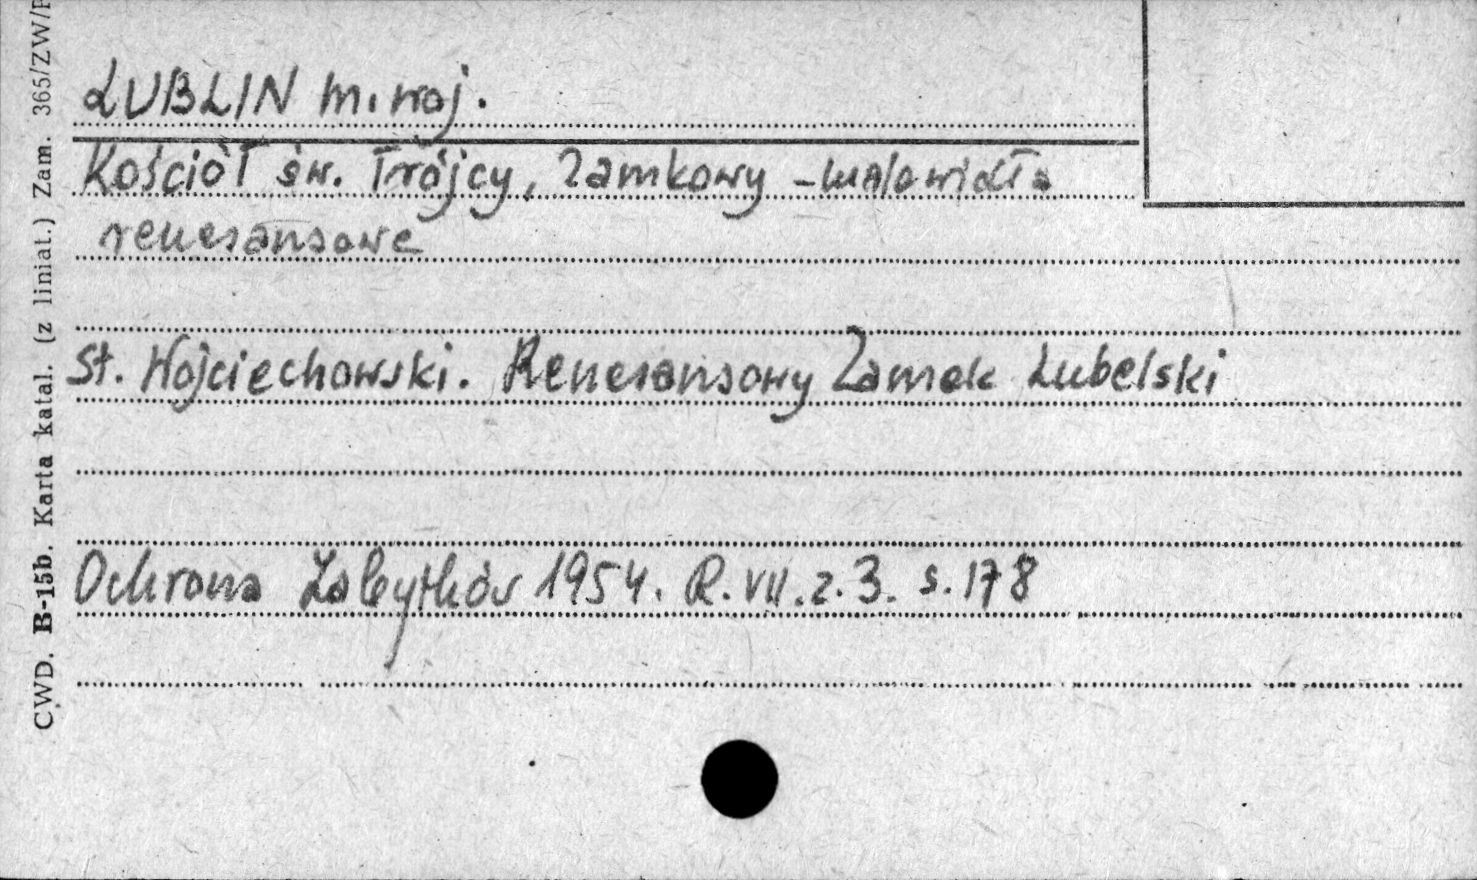 LUBLIN m. woj.
Kościół św. Trójcy, Zamkowy - malowidła
renesansowe
St. Wojciechowski. Renesansowy Zamek Lubelski
Ochrona Zabytków 1954. R. VII. z. 3. s. 178
CWD. B-15b. Karta katal. (z liniat.) Zam. 365/ZW/